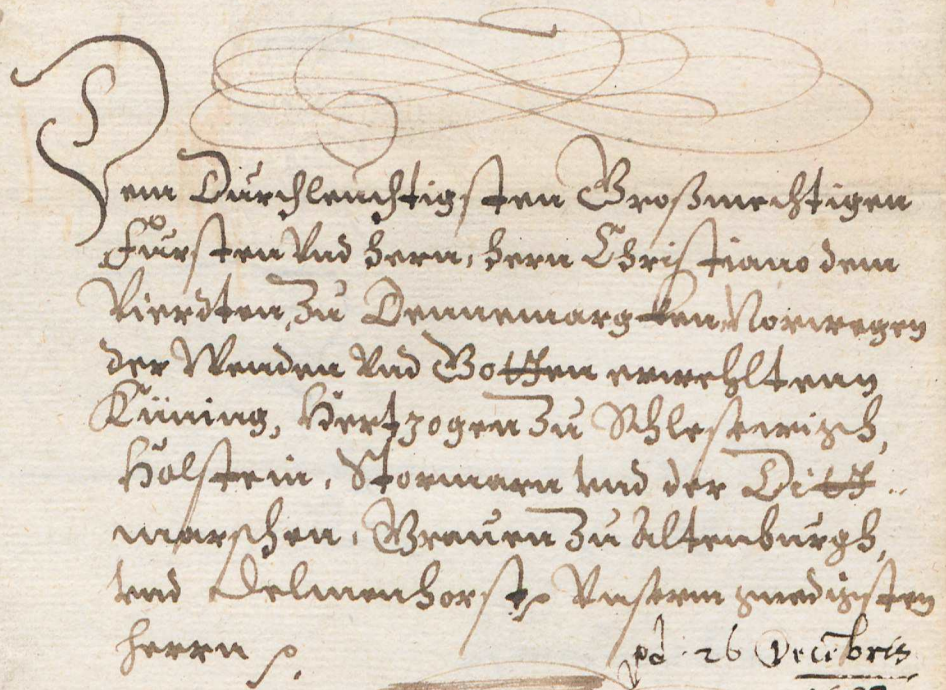 Dem Durchleuchtigsten Großmechtigen
Fürsten Vnd hern, hern Christiano dem
Vierdten, Zu Dennemargken Norwegen
der Wenden Vnd Gotten erwehltenn
Küning, Hertzogen Zu Schleßwigch,
Holstein, Stormarn vnd der Ditt-
marschen, Grauen Zu Altenburgh,
vnd Delmenhorst Vnserm gnedigsten
herrn
pd 26 Decembris